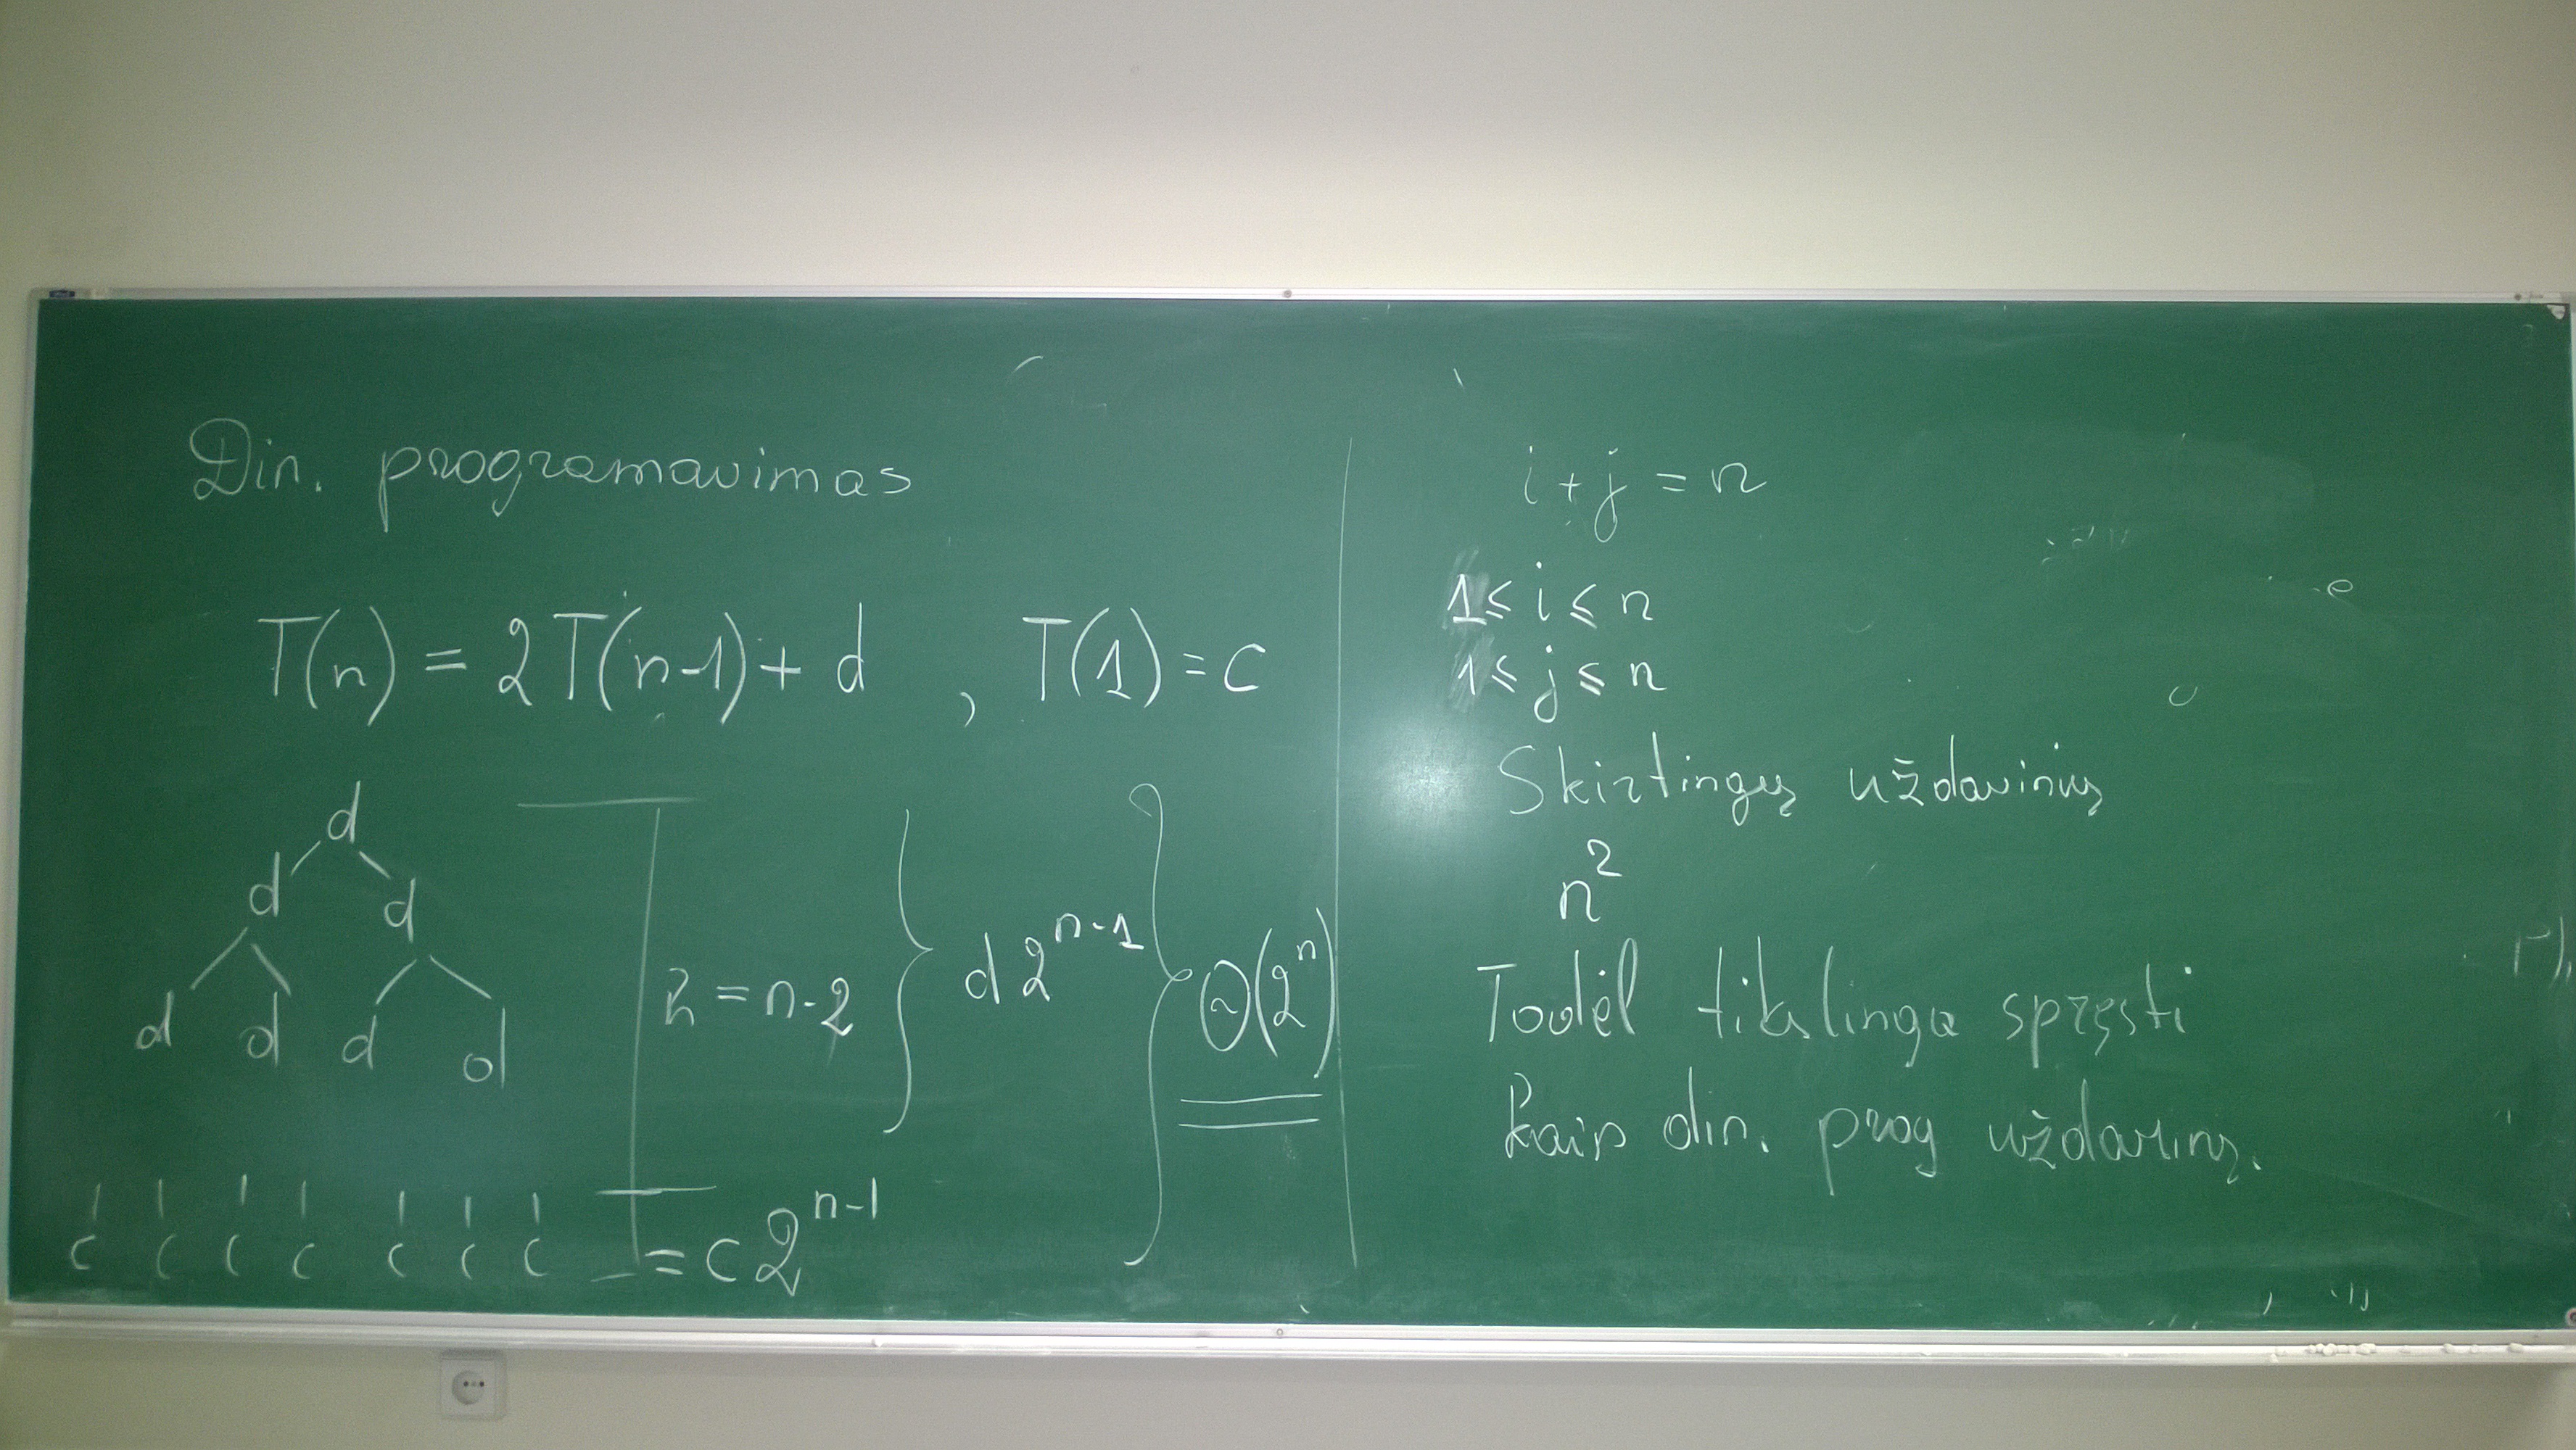 Din. programavimas
T(n) = 2T(n-1) + d , T(1) = c
d
d d
d d d d
h = n-2
d 2^{n-1}
Θ(2^n)
c c c c c c c = c 2^{n-1}
i + j = n
1 ≤ i ≤ n
1 ≤ j ≤ n
Skirtingų uždavinių
n^2
Todėl tikslinga spręsti
kaip din. prog uždavinį.